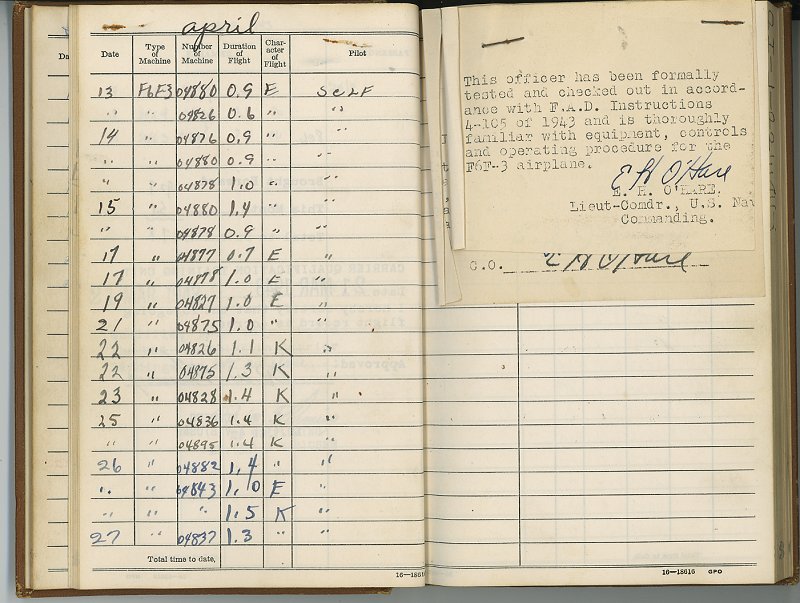 april
Date Type of Machine Number of Machine Duration of Flight Character of Flight Pilot
13 F6F3 04880 0.9 E SELF
" " 04826 0.6 " "
14 " 04876 0.9 " "
" " 04880 0.9 "
" " 04878 1.0 " "
15 " 04880 1.4 " "
" " 04878 0.9 " "
17 " 04877 0.7 E "
17 " 04878 1.0 E "
19 " 04827 1.0 E "
21 " 04875 1.0 " "
22 " 04826 1.1 K "
22 " 04875 1.3 K "
23 " 04828 1.4 K "
25 " 04836 1.4 K "
" " 04895 1.4 K "
26 " 04882 1.4 " "
" " 04843 1.0 E "
" " " 1.5 K "
27 " 04837 1.3 " "
Total time to date,
16—1861
Da
This officer has been formally
tested and checked out in accord-
ance with F.A.D. Instructions
4-105 of 1943 and is thoroughly
familiar with equipment, controls
and operating procedure for the
F6F-3 airplane.
E H O'Hare
E. H. O'HARE.
Lieut-Comdr., U.S. Nav
Commanding.
C.O. E H O'Hare
16—18616 GPO